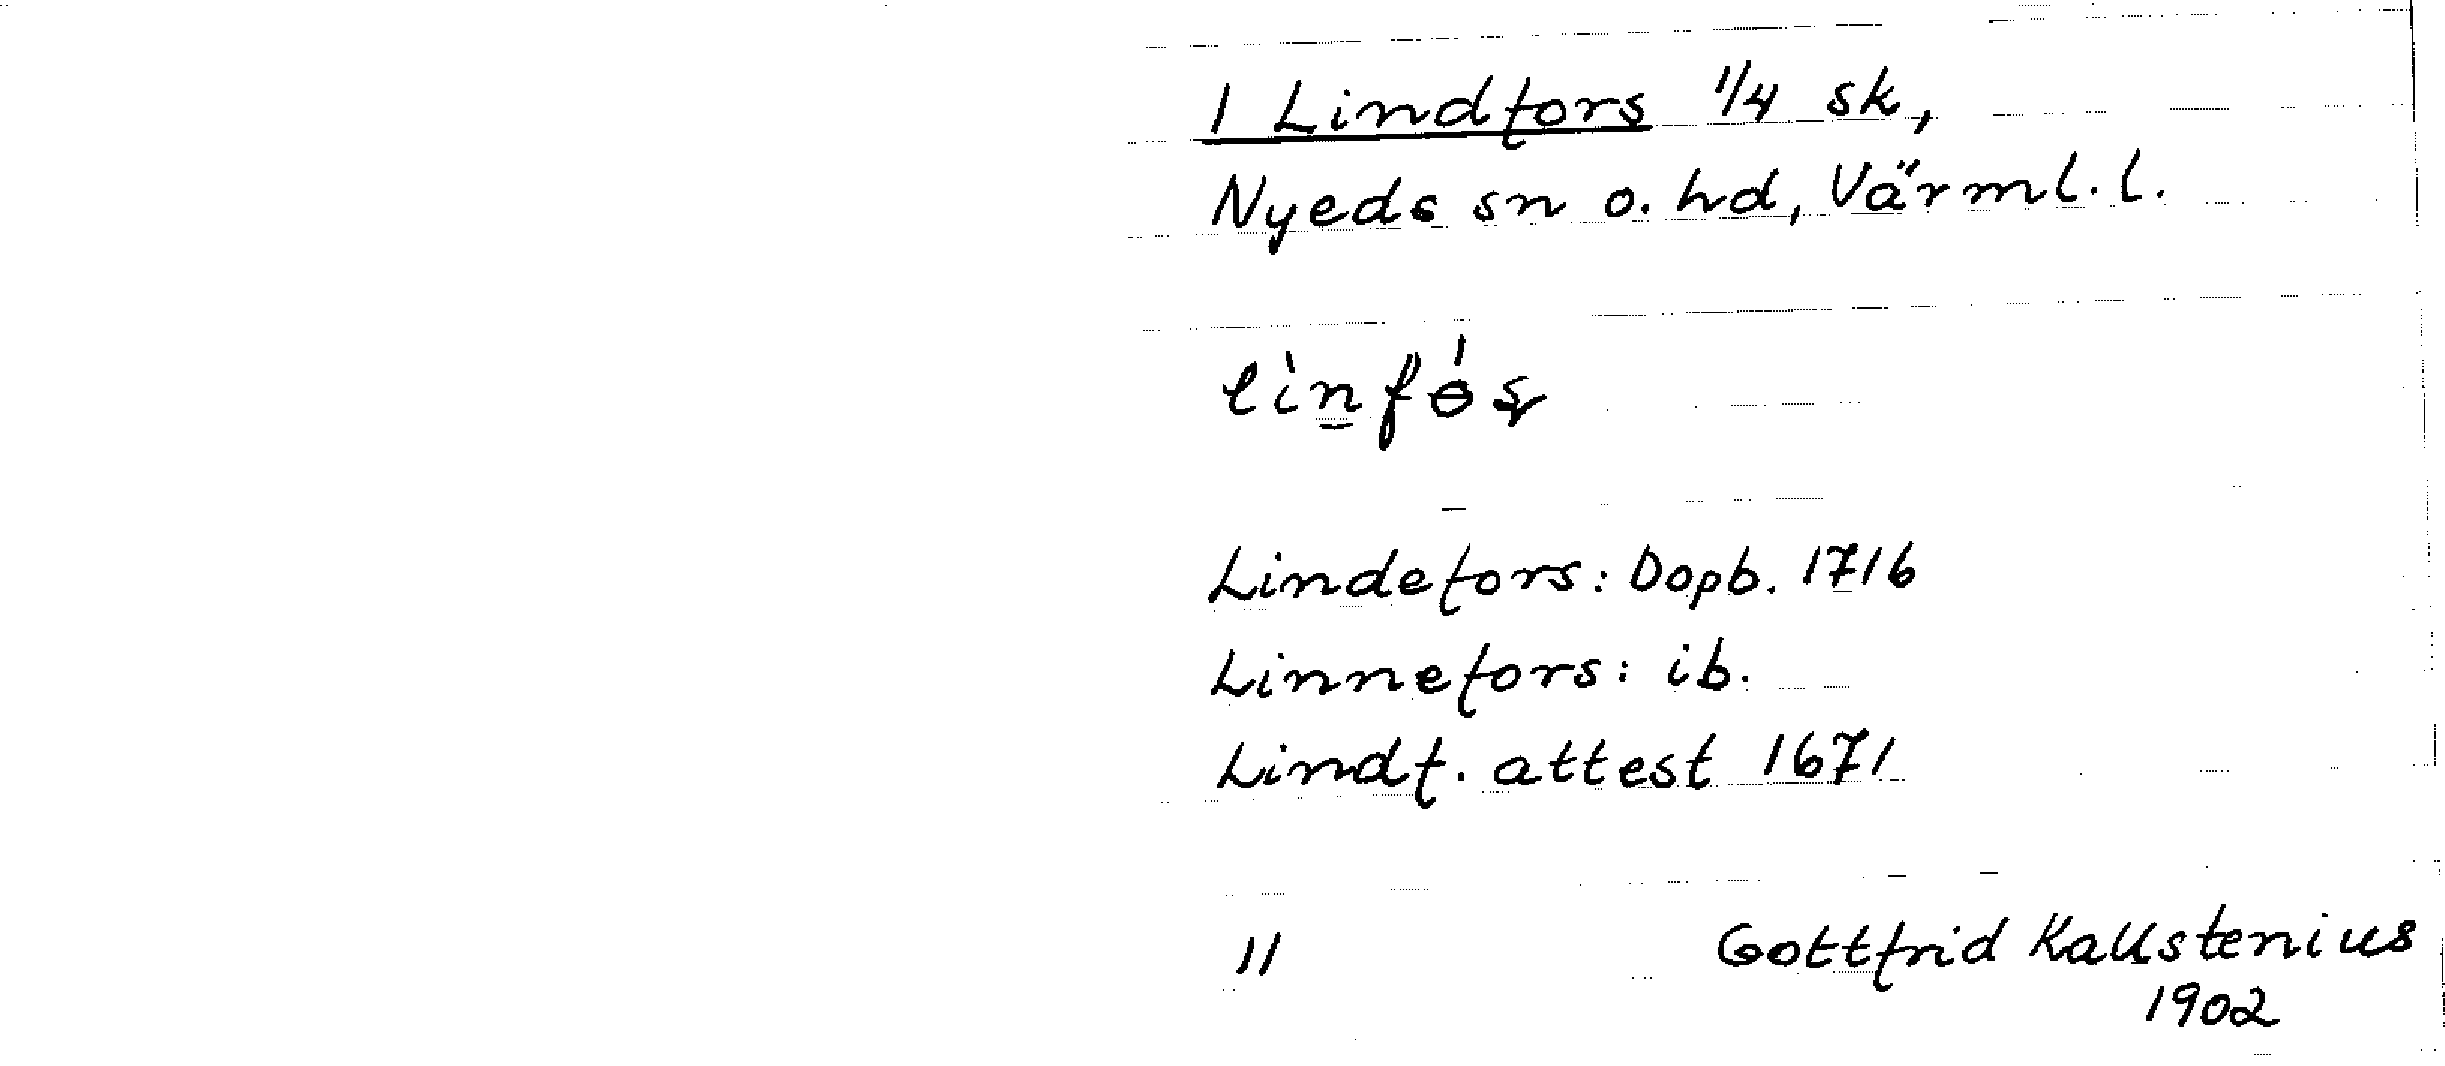 1 Lindfors 1/4 sk,
Nyeds sn o. hd, Värml. l.
lìnfɵ́ʂ
Lindefors: Dopb. 1716
Linnefors: ib.
Lindf. attest 1671
11 Gottfrid Kallstenius
1902